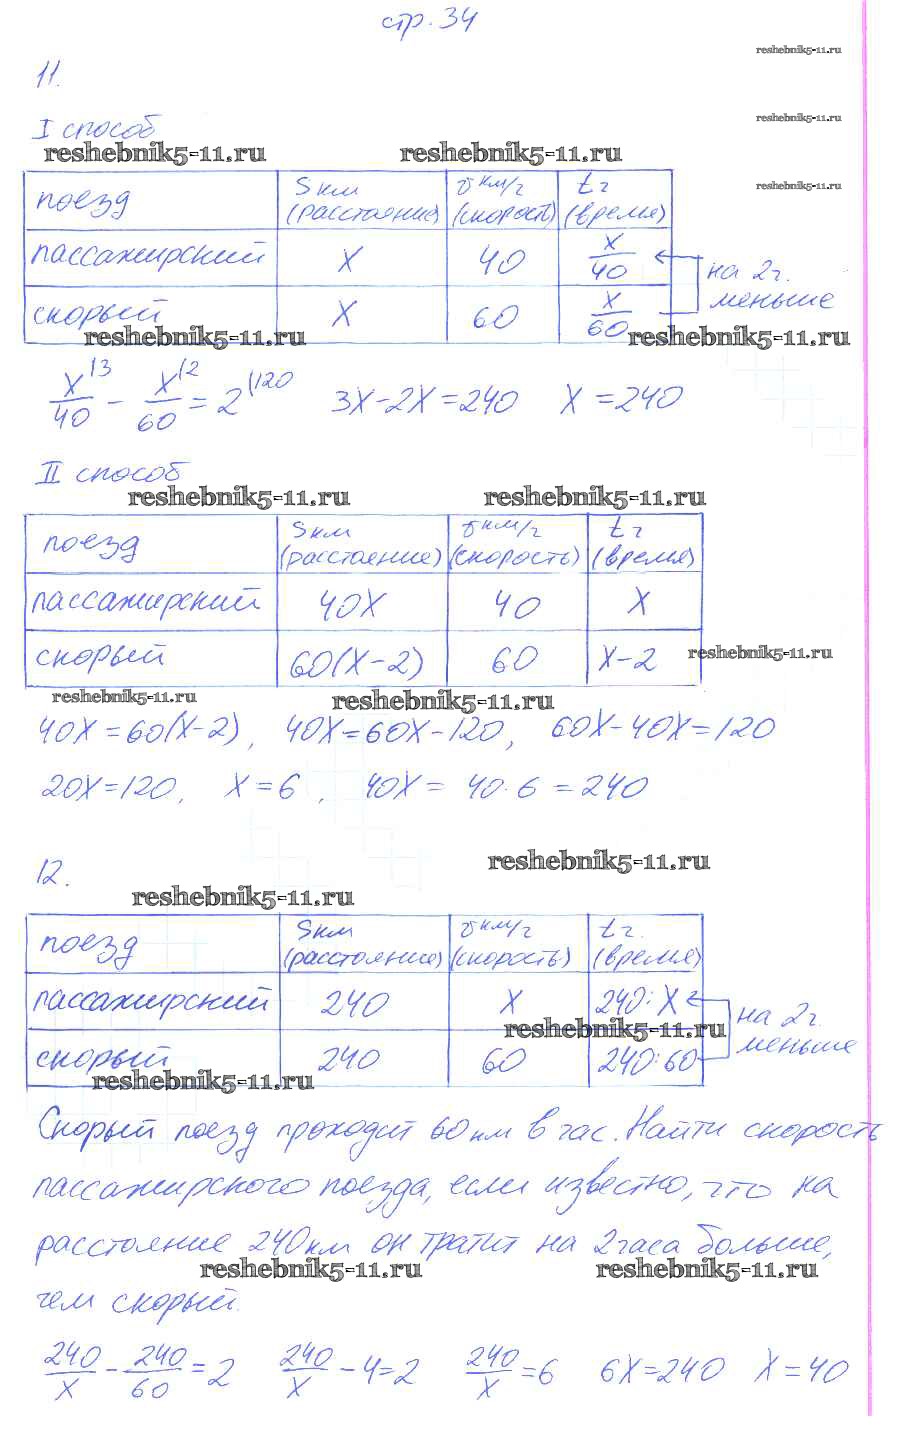 стр. 34
reshebnik5-11.ru
11.
reshebnik5-11.ru
I способ
reshebnik5-11.ru reshebnik5-11.ru
reshebnik5-11.ru
поезд | S км (расстояние) | v км/ч (скорость) | t ч (время)
пассажирский | x | 40 | x/40
скорый | x | 60 | x/60
на 2 ч.
меньше
reshebnik5-11.ru reshebnik5-11.ru
x/40 (3 - x/60 (2 = 2 (120 3x-2x=240 x=240
II способ
reshebnik5-11.ru reshebnik5-11.ru
поезд | S км (расстояние) | v км/ч (скорость) | t ч (время)
пассажирский | 40x | 40 | x
скорый | 60(x-2) | 60 | x-2
reshebnik5-11.ru
reshebnik5-11.ru reshebnik5-11.ru
40x=60(x-2), 40x=60x-120, 60x-40x=120
20x=120, x=6, 40x= 40·6=240
reshebnik5-11.ru
12.
reshebnik5-11.ru
поезд | S км (расстояние) | v км/ч (скорость) | t ч. (время)
пассажирский | 240 | x | 240:x
reshebnik5-11.ru
скорый | 240 | 60 | 240:60
на 2 ч.
меньше
reshebnik5-11.ru
Скорый поезд проходит 60 км в час. Найти скорость
пассажирского поезда, если известно, что на
расстояние 240 км он тратит на 2 часа больше,
reshebnik5-11.ru reshebnik5-11.ru
чем скорый.
240/x - 240/60 = 2 240/x - 4=2 240/x = 6 6x=240 x=40